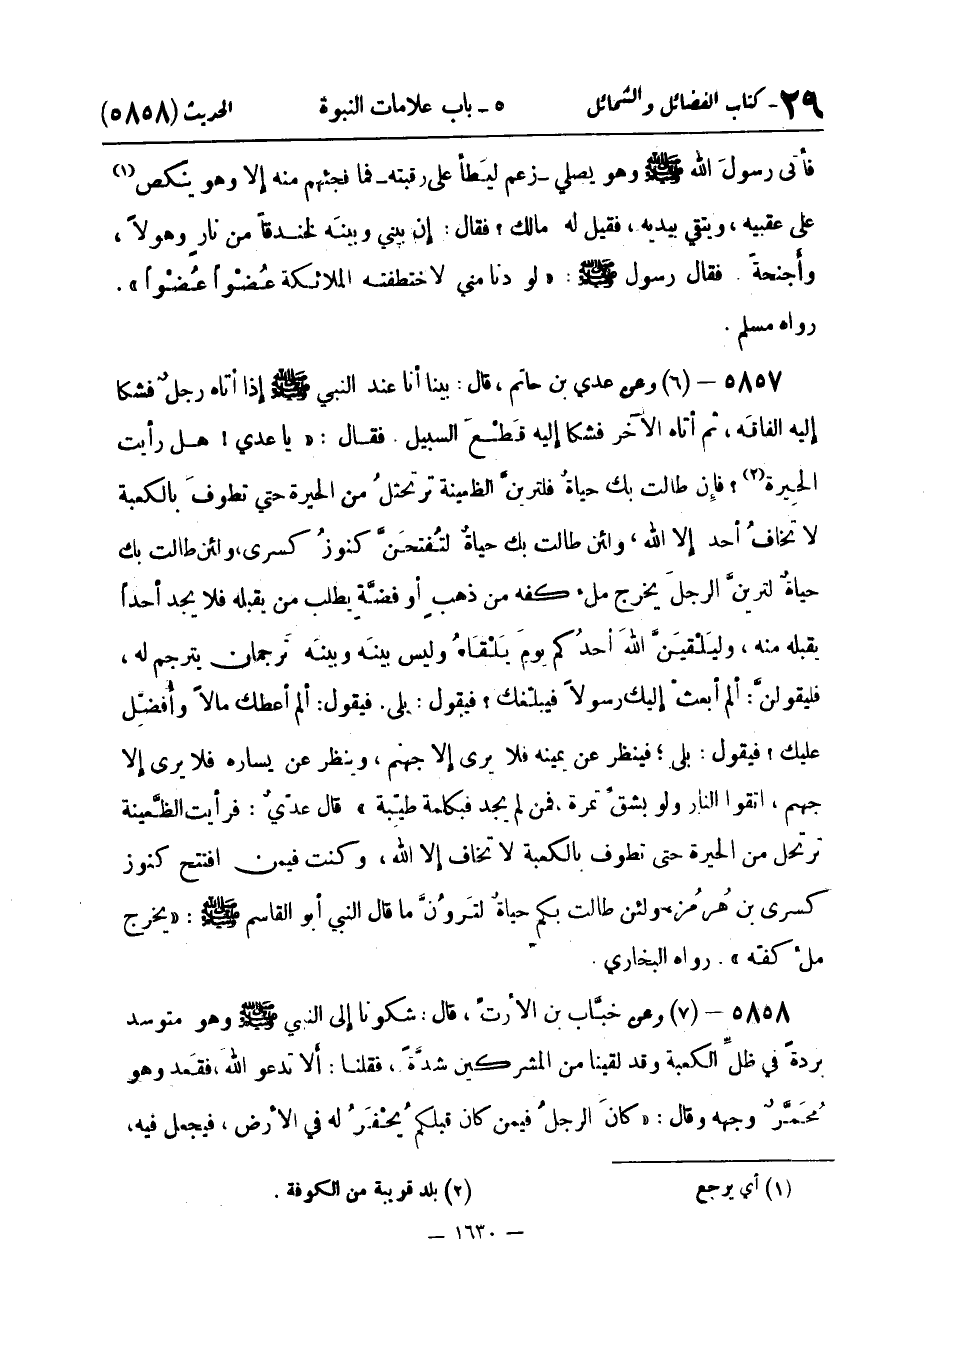 ٢٩- كتاب الفضائل والشمائل ٥ - باب علامات النبوة الحديث (٥٨٥٨)
فأتى رسولَ الله ﷺ وهو يصلي -زعم ليَطأ على رقبته- فما فجئهم منه إلا وهو ينكص(١)
على عقبيه، ويتقي بيديه، فقيل له مالك؟ فقال: إن بيني وبينه لخندقاً من نارٍ وهولاً،
وأجنحةً. فقال رسول ﷺ: «لو دنا مني لاختطفته الملائكة عُضْواً عُضْواً».
رواه مسلم.
٥٨٥٧ - (٦) وعن عدي بن حاتم، قال: بينا أنا عند النبي ﷺ إذا أتاه رجلٌ فشكا
إليه الفاقه، ثم أتاه الآخر فشكا إليه قَطْعَ السبيل. فقال: «يا عدي! هل رأيت
الحيرة(٢)؟ فإن طالت بك حياةٌ فلترينَّ الظعينة ترتحلُ من الحيرة حتى تطوفَ بالكعبة
لا تخافُ أحد إلا الله، ولئن طالت بك حياةٌ لتُفتحَنَّ كنوزُ كسرى، ولئن طالت بك
حياةٌ لترينَّ الرجلَ يخرج ملء كفه من ذهبٍ أو فضَّةٍ يطلب من يقبله فلا يجد أحداً
يقبله منه، وليَلْقيَنَّ اللهَ أحدُكم يومَ يَلْقاهُ وليس بينه وبينه ترجمان يترجم له،
فليقولنَّ: ألم أبعثْ إليك رسولاً فيبلّغك؟ فيقول: بلى. فيقول: ألم أعطك مالاً وأُفضِل
عليك؟ فيقول: بلى؛ فينظر عن يمينه فلا يرى إلا جهنم، وينظر عن يساره فلا يرى إلا
جهنم، اتقوا النار ولو بشقِّ تمرة، فمن لم يجد فبكلمة طيّبة» قال عديٌ: فرأيت الظَّعينة
ترتحل من الحيرة حتى تطوف بالكعبة لا تخاف إلا الله، وكنت فيمن افتتح كنوز
كسرى بن هُرمُز، ولئن طالت بكم حياةٌ لتروُنَّ ما قال النبي أبو القاسم ﷺ: «يخرج
ملءَ كفّه». رواه البخاري.
٥٨٥٨ - (٧) وعن خبَّاب بن الأرتّ، قال: شكونا إلى النبي ﷺ وهو متوسد
بردةً في ظلِّ الكعبة وقد لقينا من المشركين شدَّةً، فقلنا: ألا تدعو الله، فقعد وهو
مُحَمَّرٌ وجهه وقال: «كانَ الرجلُ فيمن كان قبلكم يُحْفَرُ له في الأرض، فيجعل فيه،
(١) أي يرجع (٢) بلد قريبة من الكوفة.
- ١٦٣٠ -